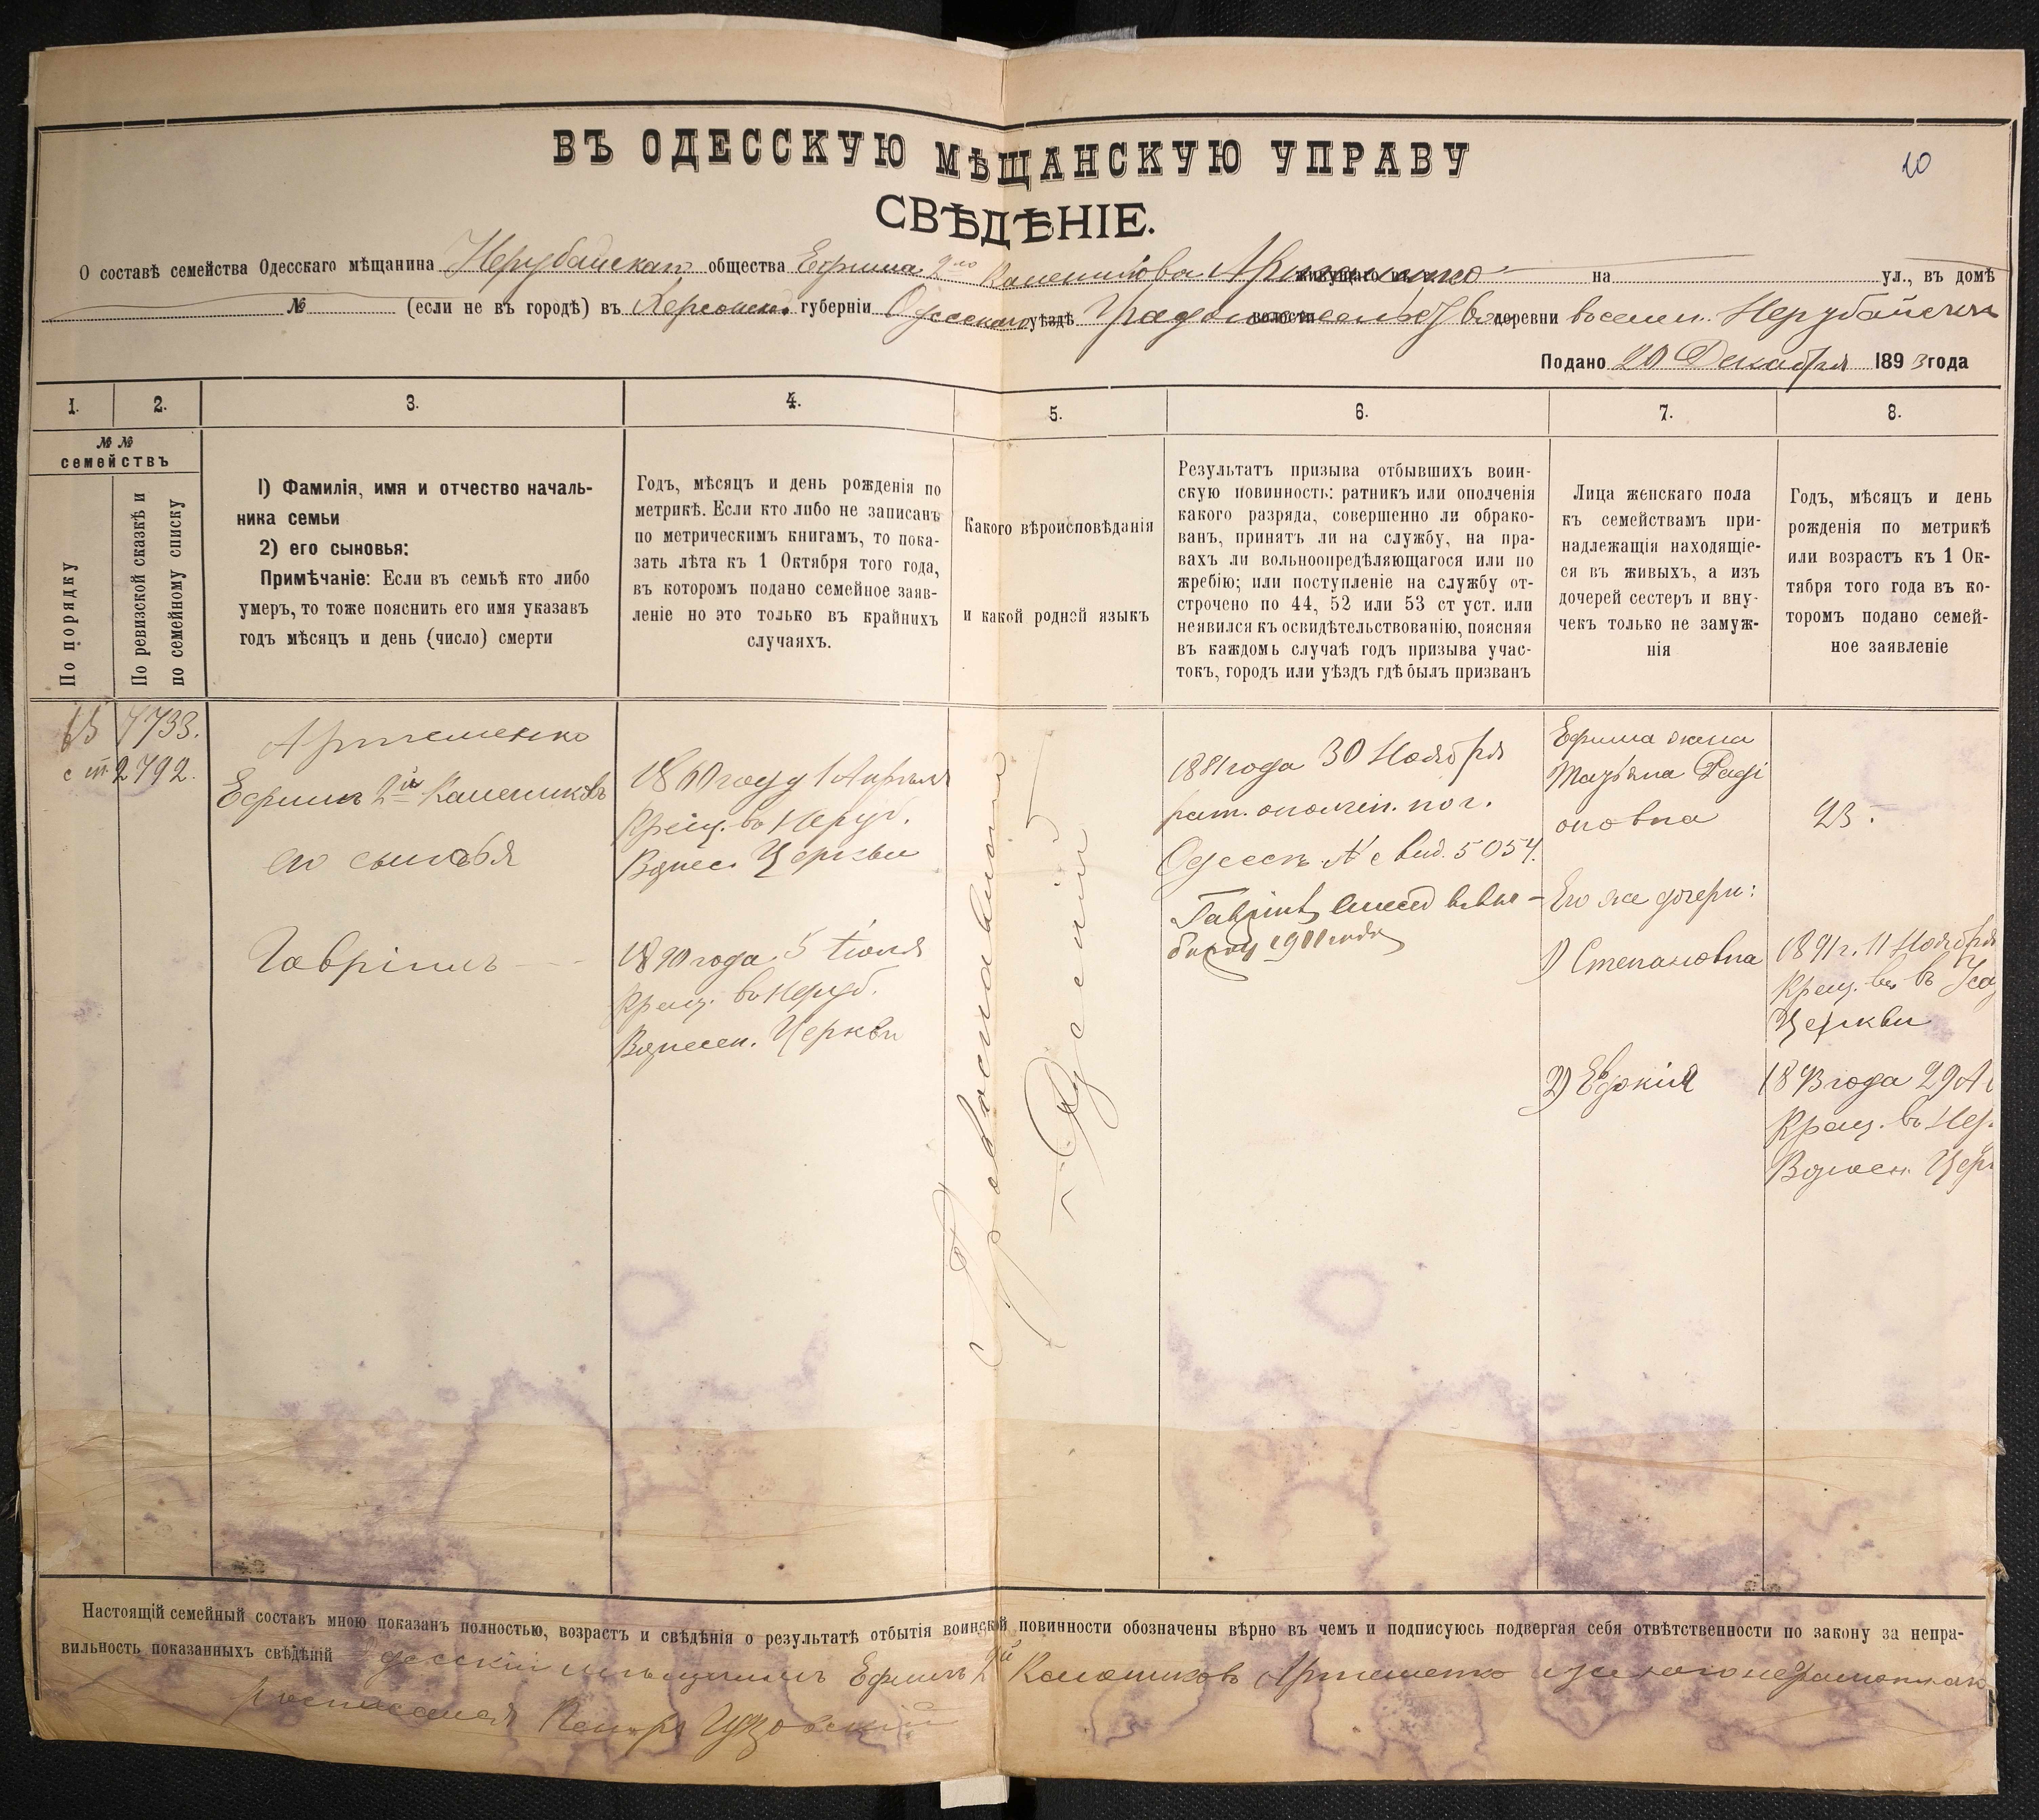 ВЪ ОДЕССКУЮ МѢЩАНСКУЮ УПРАВУ
10
СВѢДѢНІЕ.
О составѣ семейства Одесскаго мѣщанина Нерубайскаго общества Ефима 2го Калешикова Артеменко живущаго на ул., въ домѣ
№ (если не въ городѣ) въ Херсонск. губерніи Одесскаго уѣздѣ Градоначальст волости деревни Нерубайскихъ
Подано 20 Декабря 1893 года
1. 2. 3. 4. 5. 6. 7. 8.
№ №
семействъ
По порядку
По ревизской сказкѣ и
по семейному списку
1) Фамилія, имя и отчество началь-
ника семьи
2) его сыновья:
Примѣчаніе: Если въ семьѣ кто либо
умеръ, то тоже пояснить его имя указавъ
годъ мѣсяцъ и день (число) смерти
Годъ, мѣсяцъ и день рожденія по
метрикѣ. Если кто либо не записанъ
по метрическимъ книгамъ, то пока-
зать лѣта къ 1 Октября того года,
въ которомъ подано семейное заяв-
леніе но это только въ крайнихъ
случаяхъ.
Какого вѣроисповѣданія
и какой родной языкъ
Результатъ призыва отбывшихъ воин-
скую повинность: ратникъ или ополченія
какого разряда, совершенно ли обрако-
ванъ, принятъ ли на службу, на пра-
вахъ ли вольноопредѣляющагося или по
жребію; или поступленіе на службу от-
строчено по 44, 52 или 53 ст уст. или
неявился къ освидѣтельствованію, поясняя
въ каждомъ случаѣ годъ призыва учас-
токъ, городъ или уѣздъ гдѣ былъ призванъ
Лица женскаго пола
къ семействамъ при-
надлежащія находящіе-
ся въ живыхъ, а изъ
дочерей сестеръ и вну-
чекъ только не замуж-
нія
Годъ, мѣсяцъ и день
рожденія по метрикѣ
или возрастъ къ 1 Ок-
тября того года въ ко-
торомъ подано семей-
ное заявленіе
15 7733.
с т. 2792.
Артеменко
Ефимъ 2й Калешиковъ
его сыновья
Гавріилъ
1860 году 1 Апрѣля
Крещ. въ Неруб.
Вознес. Церкви
1890 года 5 Іюля
Крещ. въ Неруб.
Вознесен. Церкви
Православнаго
Русскій
1881 года 30 Ноября
рат. ополчен. по г.
Одессѣ № с вид. 5054.
Гавріилъ
1911 года
Ефима жена
Татьяна Раді
оновна
23.
Его же дочери:
1) Степановна
1891 г. 11 Ноября
Крещ. въ Усат
Церкви
2) Евдокія
1893 года 29 А
Крещ. въ Нер.
Вознесен. Церк
Настоящій семейный составъ мною показанъ полностью, возрастъ и свѣдѣнія о результатѣ отбытія воинской повинности обозначены вѣрно въ чемъ и подписуюсь подвергая себя отвѣтственности по закону за непра-
вильность показанныхъ свѣдѣній Одесскій мѣщанинъ Ефимъ 2й Калешиковъ Артеменко а за него неграмотнаго
росписался